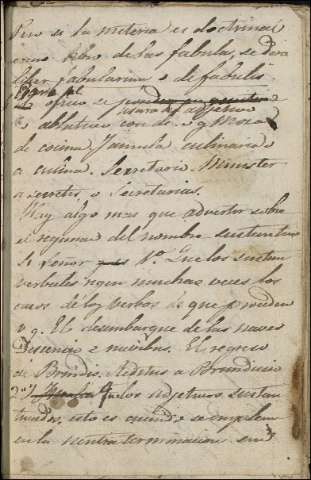 Pero si la materia es doctrinal
como libro de las fabulas, se dira
liber fabularum o de fabulis
Para el
oficio se usará del adjetivo
o ablativo con de. v g Moza
de cocina, famula culinaria
a culina. Secretario Minister
a secretis, o Secretarius.
Hay algo mas que advertir sobre
el regimen del nombre sustantivo
Que los sustan
verbales rigen muchas veces los
casos de los verbos de que proceden
v g. El desembarque de las naves
Descensio e navibus. El regreso
de Brindis. Reditus a Brundisio
2º los adjetivos sustan
tivados, esto es cuando se emplean
en la neutra terminacion sin